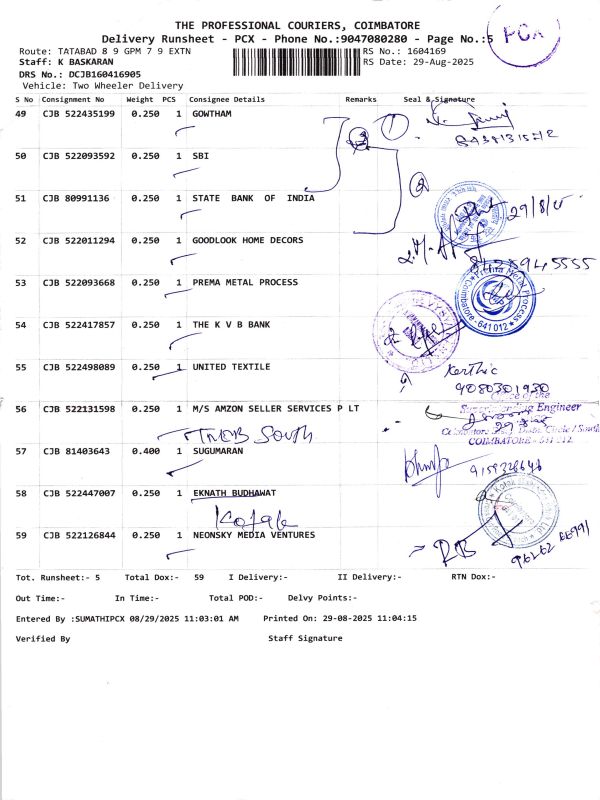 THE PROFESSIONAL COURIERS, COIMBATORE
Delivery Runsheet - PCX - Phone No.:9047080280 - Page No.:5
PCX
Route: TATABAD 8 9 GPM 7 9 EXTN
RS No.: 1604169
Staff: K BASKARAN
RS Date: 29-Aug-2025
DRS No.: DCJB160416905
Vehicle: Two Wheeler Delivery
S No Consignment No Weight PCS Consignee Details Remarks Seal & Signature
49 CJB 522435199 0.250 1 GOWTHAM
50 CJB 522093592 0.250 1 SBI
51 CJB 80991136 0.250 1 STATE BANK OF INDIA
29/8/25
52 CJB 522011294 0.250 1 GOODLOOK HOME DECORS
53 CJB 522093668 0.250 1 PREMA METAL PROCESS
Prema Metal Process
Coimbatore - 641 012
54 CJB 522417857 0.250 1 THE K V B BANK
55 CJB 522498089 0.250 1 UNITED TEXTILE
Karthic
9080301930
56 CJB 522131598 0.250 1 M/S AMZON SELLER SERVICES P LT
Office of the
Superintending Engineer
COIMBATORE - 641 012
TNEB South
57 CJB 81403643 0.400 1 SUGUMARAN
58 CJB 522447007 0.250 1 EKNATH BUDHAWAT
Kotak
59 CJB 522126844 0.250 1 NEONSKY MEDIA VENTURES
Tot. Runsheet:- 5 Total Dox:- 59 I Delivery:- II Delivery:- RTN Dox:-
Out Time:- In Time:- Total POD:- Delvy Points:-
Entered By :SUMATHIPCX 08/29/2025 11:03:01 AM Printed On: 29-08-2025 11:04:15
Verified By Staff Signature